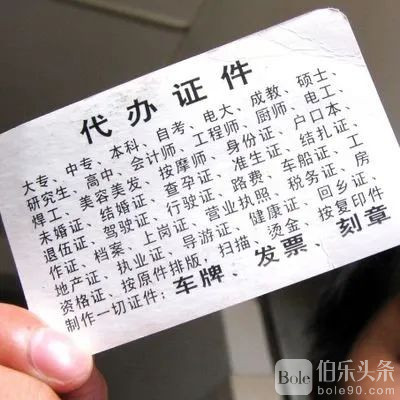 代办证件
大专、中专、本科、自考、电大、成教、硕士、
研究生、高中、会计师、工程师、厨师、电工、
焊工、美容美发、按摩师、身份证、户口本、
未婚证、结婚证、查孕证、准生证、结扎证、
退伍证、驾驶证、行驶证、路费、车船证、工
作证、档案、上岗证、营业执照、税务证、房
地产证、执业证、导游证、健康证、回乡证、
资格证、按原件排版，扫描、烫金、按复印件
制作一切证件：车牌、发票、刻章
Bole 伯乐头条
bole90.com